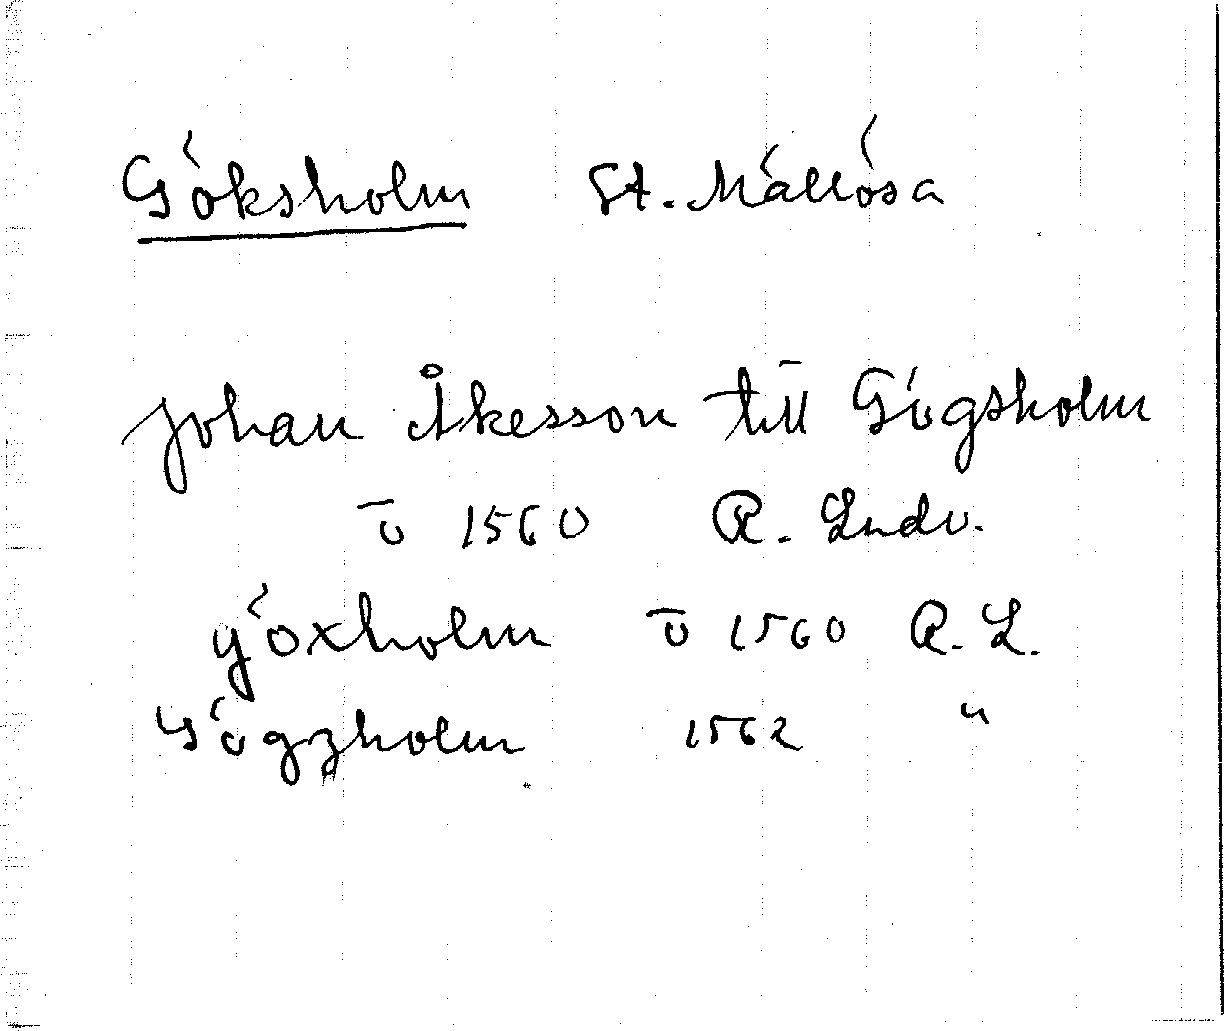 Göksholm St. Mällösa
Johan Åkesson till Gögsholm
ō 1560 R. Lndv.
göxholm ō 1560 R. L.
Gögzholm 1562 "